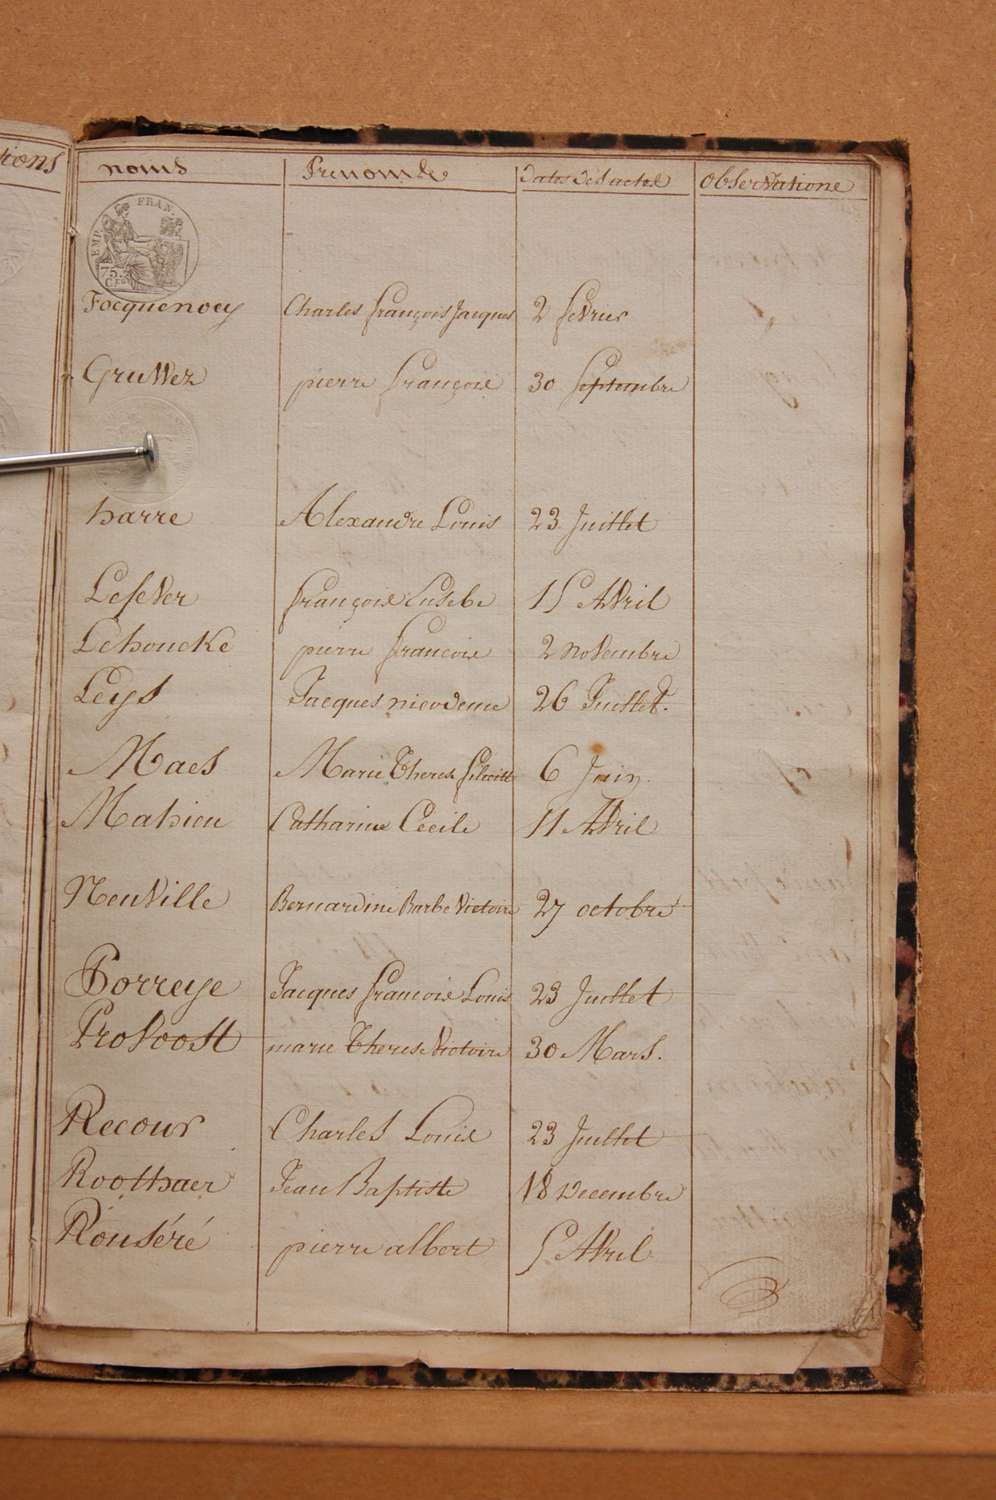 noms Prenoms Dates des actes Observations
EMP. FRAN.
75.
Focquenoey Charles François Jacques 2 fevrier
Gruwez pierre François 30 Septembre
harre Alexandre Louis 23 Juillet
Lefever François Eusebe 15 Avril
Lehoucke pierre François 2 novembre
Leys Jacques nicodeme 26 Juillet.
Maes Marie Therese felicité 6 Juin.
Mahieu Catharine Cecile 11 Avril
Neuville Bernardine Barbe Victoire 27 octobre
Porreye Jacques François Louis 23 Juillet
Provoost marie Therese Victoire 30 Mars.
Recour Charles Louis 23 Juillet
Roothaer Jean Baptiste 18 Decembre
Rouséré pierre albert 5 Avril